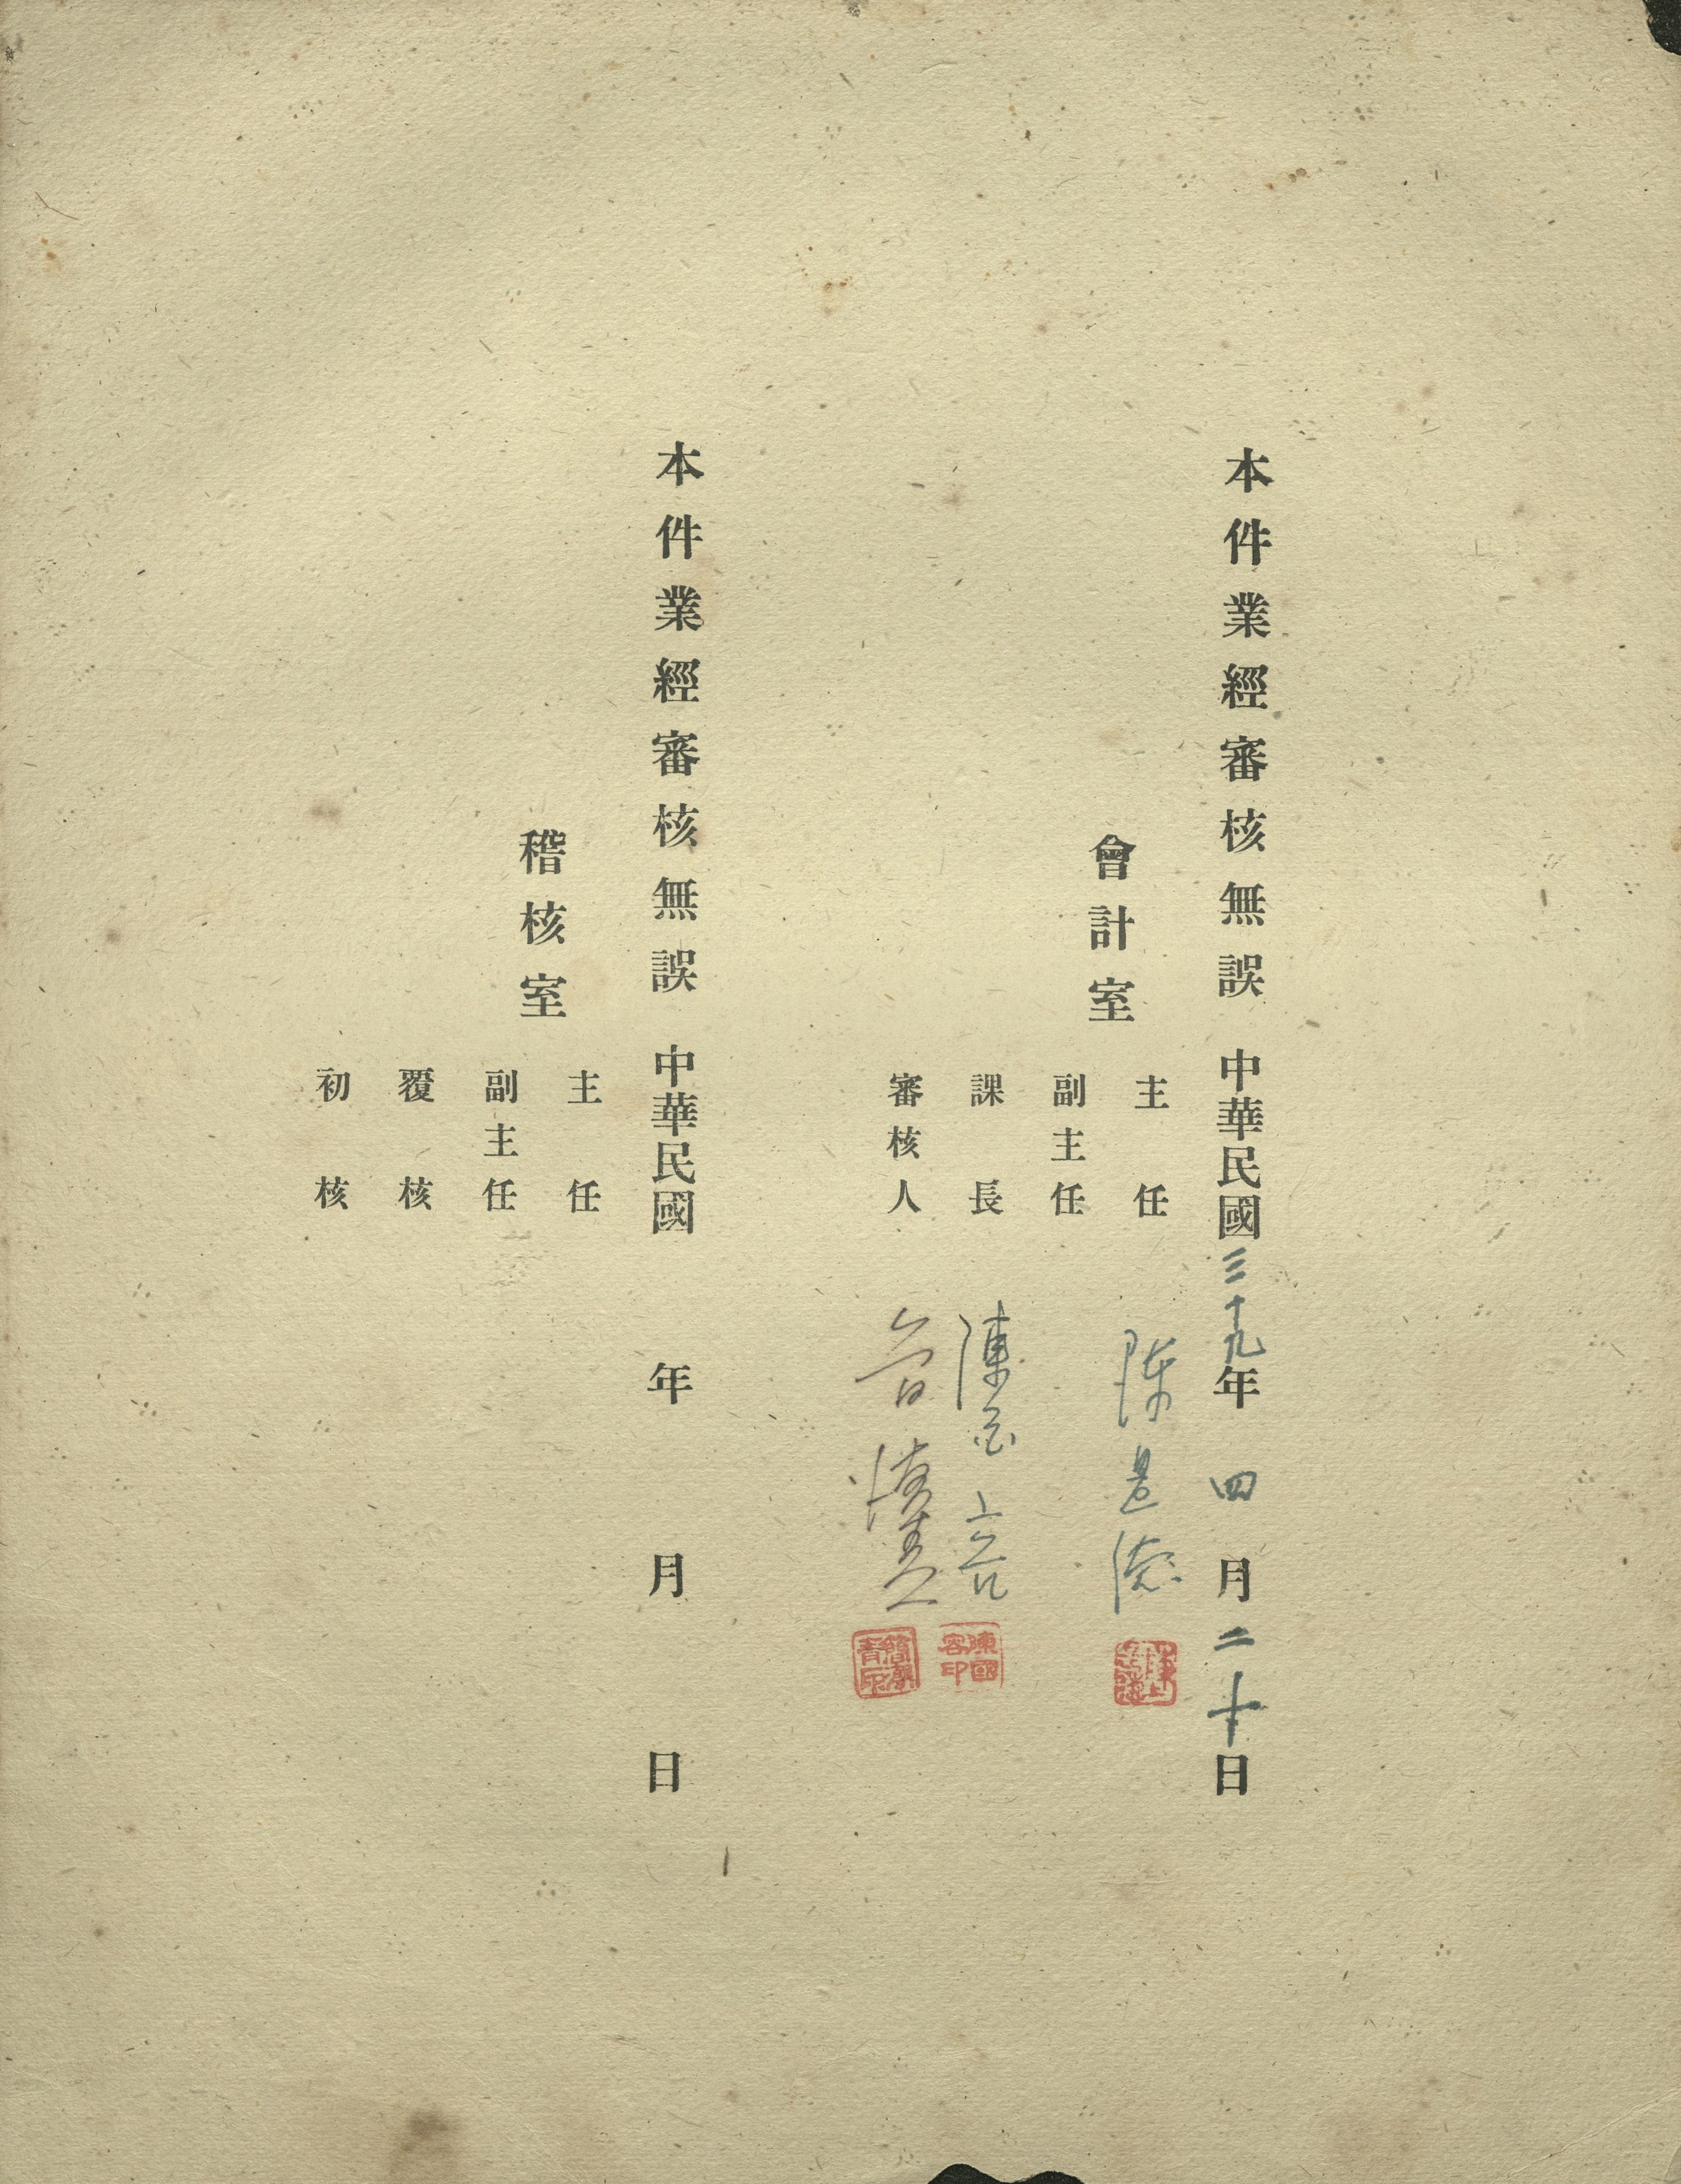 本件業經審核無誤 中華民國三十九年四月二十日
會計室
主任 陳
副主任
課長 陳
審核人
陳國容印
本件業經審核無誤 中華民國 年 月 日
稽核室
主任
副主任
覆核
初核